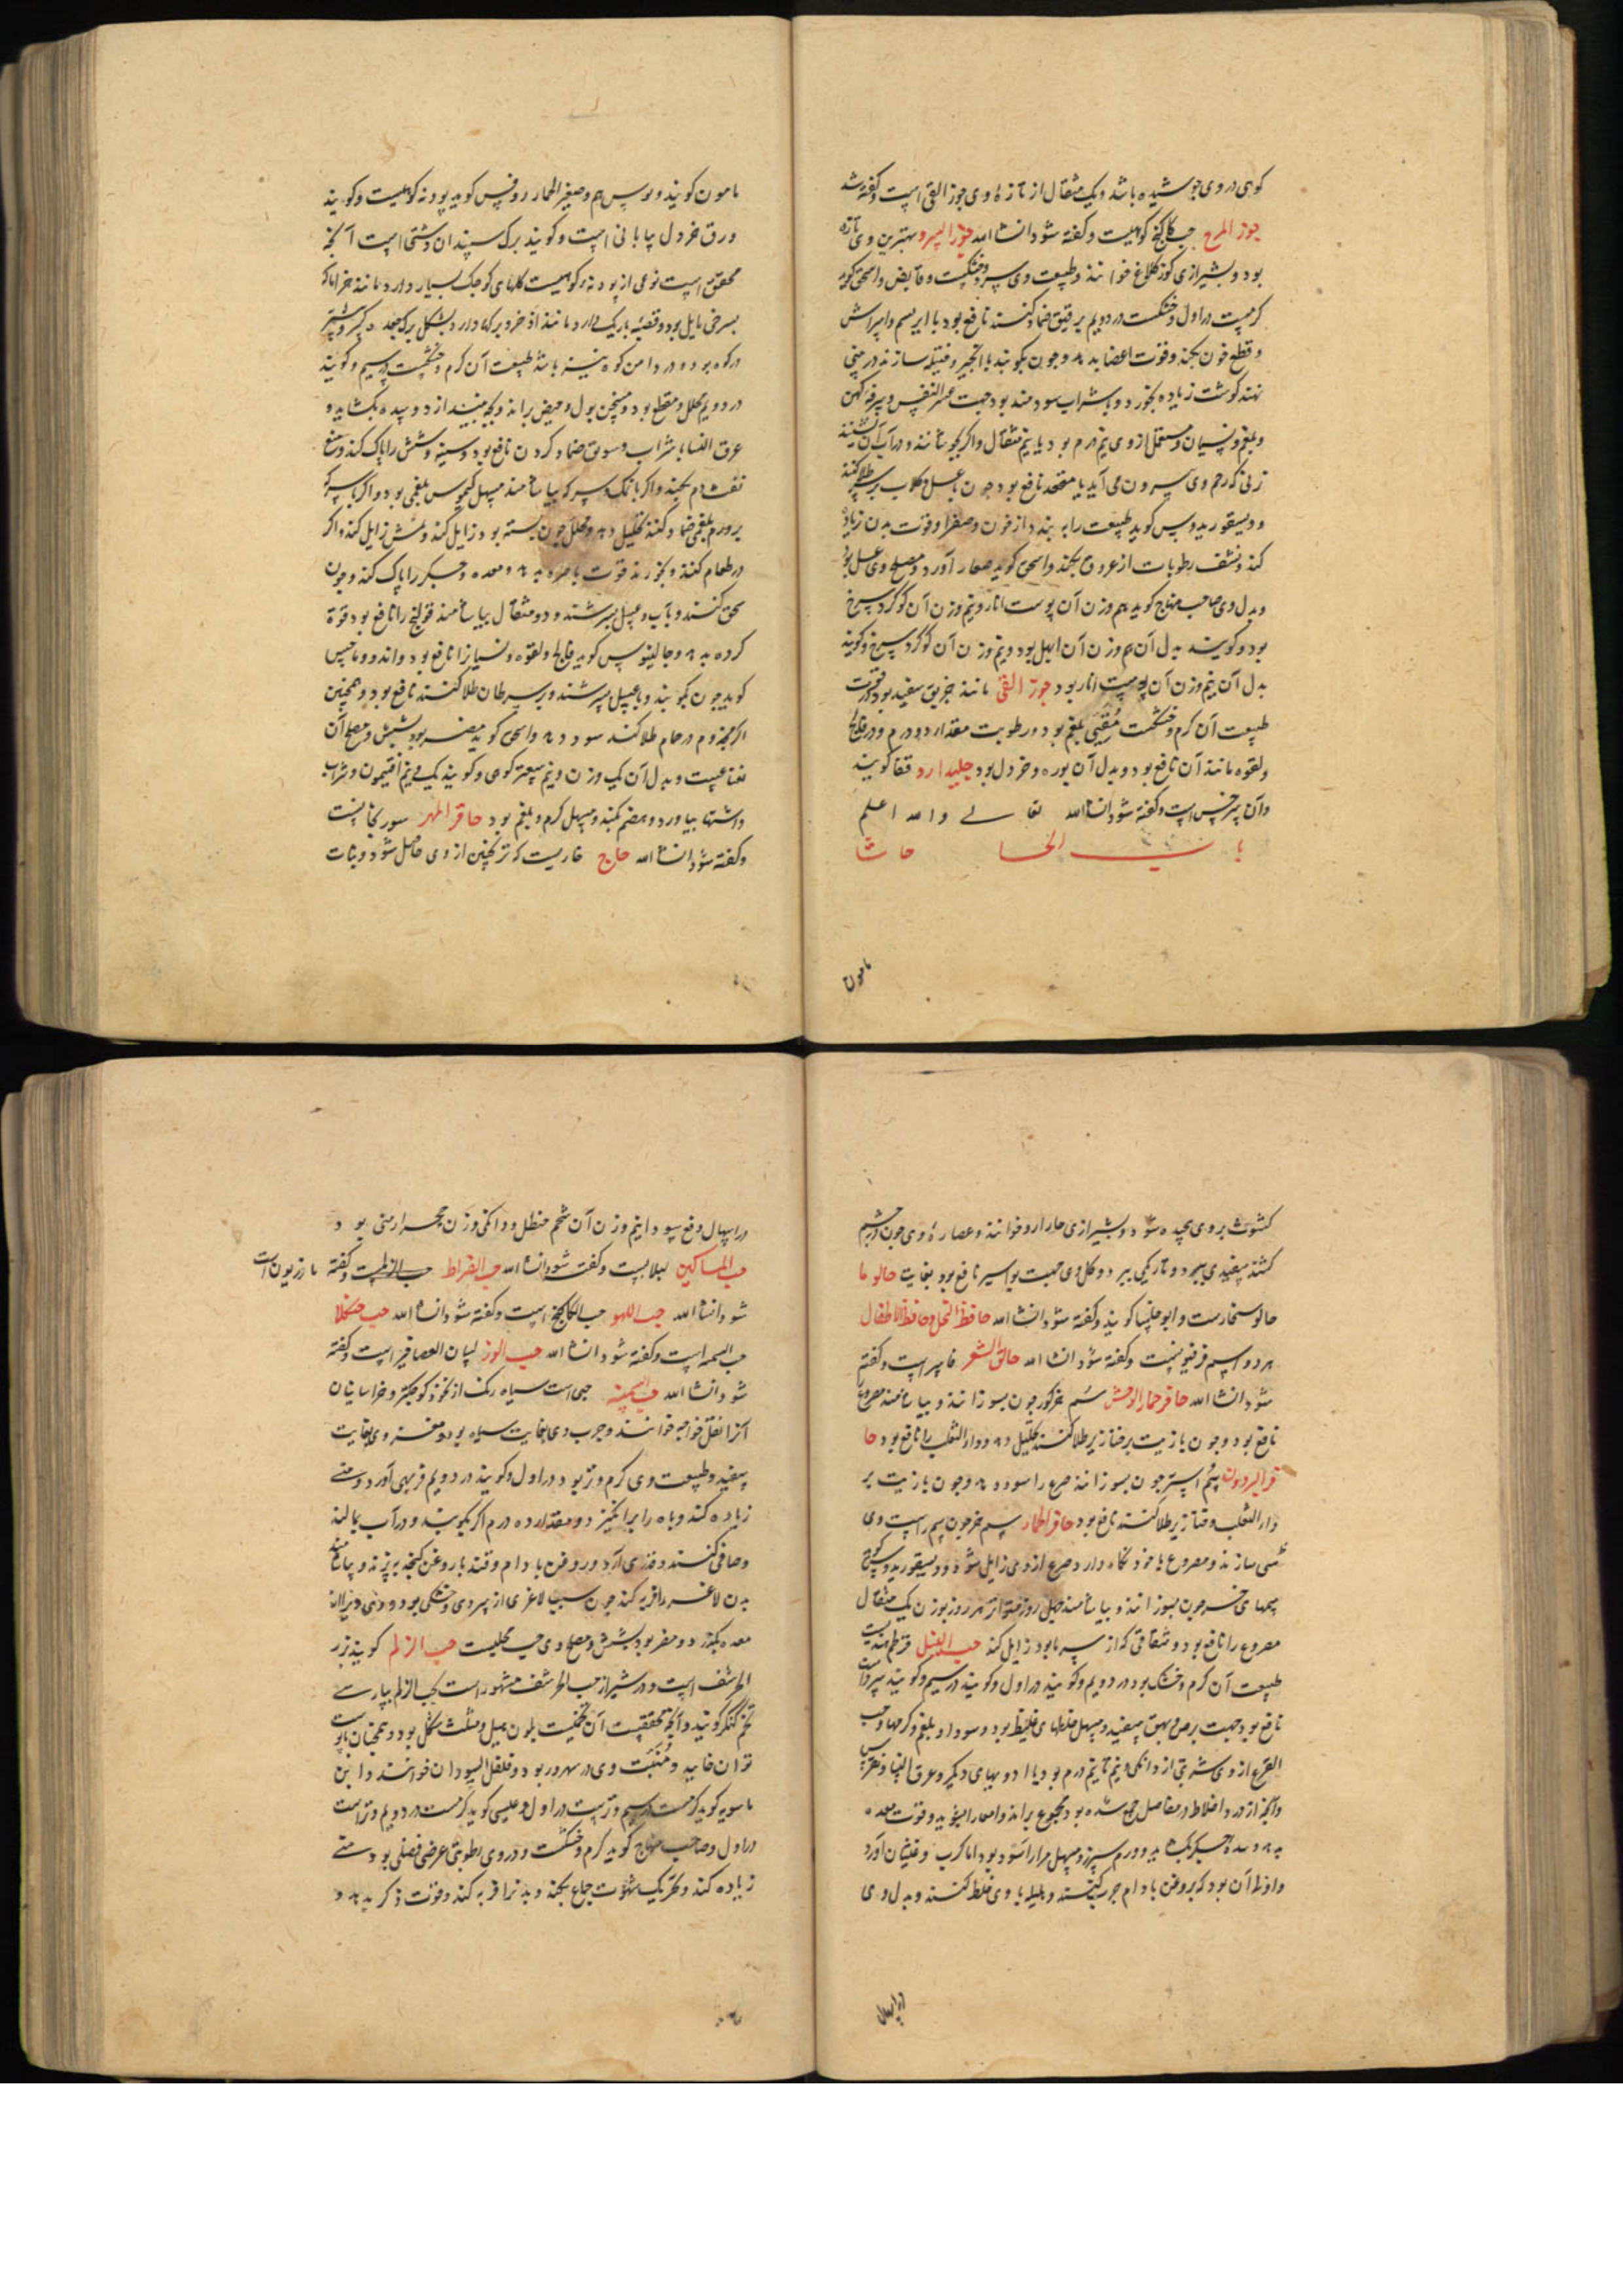 کوهی در وی جوشیده باشد و یک مثقال از تازه وی جوز القی است و گفته شد
جوز المرج حب کاکنج کوهیست و گفته شود انشاالله جوز السرو بهترین وی تازه
بود و بشیرازی کوز کلاغ خوانند و طبیعت وی سرد و خشکست و قابض و اسحق گوید
گرمست در اول و خشکست در دویم بر فتق ضماد کنند نافع بود با ابریسم و
و قطع خون بکند و قوت اعضا بدهد و چون بکوبند با انجیر و فتیله سازند در بینی
نهند گوشت زیاده بخورد و با شراب سودمند بود جهت عسر النفس و سرفه کهن
و بلغم و نسیان و مستعمل از وی نیم درم بود یا نیم مثقال و اگر بجوشانند و در آب آن نشیند
زنی که رحم وی بیرون می آید یا مقعد نافع بود چون با عسل و گلاب بر طلا کنند
و دیسقوریدوس گوید طبیعت را به بندد از خون و صفرا و قوت بدن زیاده
کند و نشف رطوبات از عروق بکند و اسحق گوید صغار آورد و مصلح وی عسل بود
و بدل وی صاحب منهاج گوید هم وزن آن پوست انار و نیم وزن آن کوکرد سرخ
بود و گویند بدل آن هم وزن آن ابهل بود و نیم وزن آن کوکرد سرخ و گویند
بدل آن نیم وزن آن پوست انار بود جوز القی مانند خربق سفید بود در قوت
طبیعت آن گرم و خشکست مقیی بلغم بود و رطوبت مقدار دو درم و در فالج
و لقوه مانند آن نافع بود و بدل آن بوره و خردل بود جلیدارو قفا گویند
و آن سرخس است و گفته شود انشاالله تعالی والله اعلم
باب الحا حاشا
مامون
مامون گویند و صعتر الحمار روفس گوید پودنه کوهیست و گویند
ورق خردل بیابانی است و گویند برک سپندان دشتی است آنچه
محقق است نوعی از پودنه کوهیست گلهای کوچک بسیار دارد مانند
بسرخی مایل بود و قضبه باریک دارد مانند اذخر و برکها دارد بشکل برک
در کوه بود و در دامن کوه نیز باشد طبیعت آن گرم و خشکست در سیم و گویند
در دویم محلل و مقطع بود و مسخن بول و حیض براند و بچه بیندازد و سده بگشاید و
عرق النسا با شراب و سویق ضماد کردن نافع بود و سینه و شش را پاک کند و منع
نفث دم بکند و اگر با نمک و سرکه بیاشامند مسهل کیموس بلغمی بود و اگر با سرکه
بر ورم بلغمی ضماد کنند تحلیل دهد و محلل خون بسته بود زایل کند و زایل کند و اگر
در طعام کنند و بخورند قوت باصره بدهد و معده و جگر را پاک کند و چون
سحق کنند و بآب و عسل بسرشند و دو مثقال بیاشامند قولنج را نافع بود قوة
کرده بدهد و جالینوس گوید فالج و لقوه و نسیان را نافع بود و
گوید چون بکوبند و با عسل بسرشند و بر سرطان طلا کنند نافع بود و همچنین
اگر مجذوم در حمام طلا کند سود دهد و اسحق گوید مضر بود بشش و مصلح آن
نعناعست و بدل آن یک وزن و نیم سعتر کوهی و گویند یک و نیم افتیمون و شراب
و اشتها بیاورد و هضم بکند و مسهل کرم و بلغم بود حافر المهر سورنجانست
و گفته شود انشاالله حاج خاریست که ترنجبین از وی حاصل شود و نبات
کشوث بر وی پیچیده شود و بشیرازی خارارو خوانند و عصاره وی چون در چشم
کشند سفیدی ببرد و تاریکی ببرد و گل وی جهت بواسیر نافع بود بغایت حالوما
حالوسخارست و ابوحلسا گویند و گفته شود انشاالله حافظ النحل و حافظ الاطفال
هر دو اسم فرفیونست و گفته شود انشاالله حالق الشعر است و گفته
شود انشاالله حافر حمار الوحش سم خرگور چون بسوزانند و بیاشامند مصروع را
نافع بود و چون با زیت بر خنازیر طلا کنند تحلیل دهد و داء الثعلب را نافع بود حا
فر البردون سم استر چون بسوزانند صرع را سود دهد و چون با زیت بر
داء الثعلب و خنازیر طلا کنند نافع بود حافر الحمار سم خر چون سم راست وی
سازند و مصروع با خود نگاه دارد صرع از وی زایل شود و دیسقوریدوس گوید
سمهای خر چون بسوزانند و بیاشامند چهل روز متواتر هر روز بوزن یک مثقال
مصروع را نافع بود و شقاقی که از سرما بود زایل کند حب النیل قرطم هندیست
طبیعت آن گرم و خشک بود در دویم و گویند در اول و گویند در سیم و گویند سرد است
نافع بود جهت برص و بهق سفید و مسهل خلطهای غلیظ بود و سودا و بلغم و کرمها و حب
القرع از وی شربتی از دانکی و نیم تا نیم درم بود یا ادویهای دیگر و عرق النسا و نقرس
و آنچه از درد اخلاط در مفاصل جمع شده بود مجموع براند و امعا را بشوید و قوت معده
بدهد و سده جگر بگشاید و ورم سپرز و مسهل مرار اسود بود اما کرب و غثیان آورد
و اولی آن بود که بروغن بادام چرب کنند و هلیله با وی خلط کنند و بدل وی
در اسهال
در اسهال و قطع سودا نیم وزن آن شحم حنظل و دانکی وزن حجر ارمنی بود و
حب المساکین لبلابست و گفته شود انشاالله حب القراط حب الزلمست و گفته مازریون است
شود انشاالله حب اللهو حب الکاکنج است و گفته شود انشاالله حب
حب السمنه است و گفته شود انشاالله حب الوز لسان العصافیر است و گفته
شود انشاالله حب السمنه حبی است سیاه رنک از نخود کوچکتر و خراسانیان
آنرا نقل خواجه خوانند و چرب و بغایت سیاه بود و مغز وی بغایت
سفید و طبیعت وی گرم و تر بود در اول و گویند در دویم فربهی آورد و منی
زیاده کند و باه را برانگیزد و مقدار ده درم اگر بکوبند و در آب بمالند
و صافی کنند و قدری آرد و روغن بادام و قند با روغن کنجد بپزند و بیاشامند
بدن لاغر را فربه کند چون سبب لاغری از سردی و خشکی بود و
معده بگذرد و مضر بود بشش و مصلح وی حب محلبست حب الزلم گویند بزر
الحرشف است و در شیراز حب الحرشف مشهور است بحب الزلم بپارسی
تخم کنگر گویند و آنچه محققست آن تخمیست بلون میل و مثلث شکل بود و همچنان با پوست
توان خایید و منبت وی در سهرورد بود و فلفل السودان خوانند و ابن
ماسویه گوید گرمست در سیم و ترست در اول و عیسی گوید گرمست در دویم و تر است
در اول و صاحب منهاج گوید گرم و خشکست و در وی رطوبتی عرضی فضلی بود و منی
زیاده کند و تحریک شهوت جماع بکند و بدن را فربه کند و قوت ذکر بدهد و